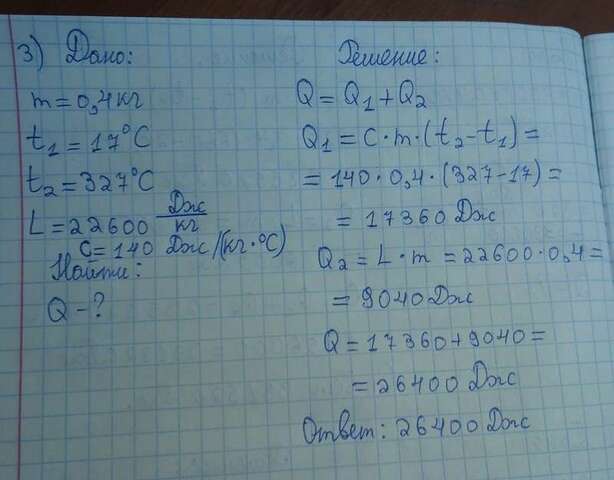 3) Дано:
m = 0,4 кг
t₁ = 17°C
t₂ = 327°C
L = 22600 Дж/кг
C = 140 Дж/(кг·°C)
Найти:
Q - ?
Решение:
Q = Q₁ + Q₂
Q₁ = C·m·(t₂-t₁) =
= 140·0,4·(327-17) =
= 17360 Дж
Q₂ = L·m = 22600·0,4 =
= 9040 Дж
Q = 17360+9040 =
= 26400 Дж
Ответ: 26400 Дж